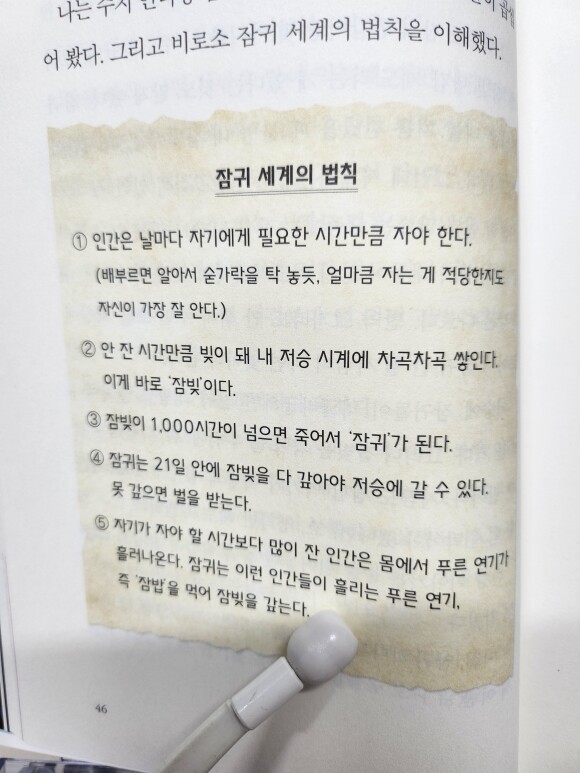 나는 수시
어 봤다. 그리고 비로소 잠귀 세계의 법칙을 이해했다.
잠귀 세계의 법칙
① 인간은 날마다 자기에게 필요한 시간만큼 자야 한다.
(배부르면 알아서 숟가락을 탁 놓듯, 얼마큼 자는 게 적당한지도
자신이 가장 잘 안다.)
② 안 잔 시간만큼 빚이 돼 내 저승 시계에 차곡차곡 쌓인다.
이게 바로 ‘잠빚’이다.
③ 잠빚이 1,000시간이 넘으면 죽어서 ‘잠귀’가 된다.
④ 잠귀는 21일 안에 잠빚을 다 갚아야 저승에 갈 수 있다.
못 갚으면 벌을 받는다.
⑤ 자기가 자야 할 시간보다 많이 잔 인간은 몸에서 푸른 연기가
흘러나온다. 잠귀는 이런 인간들이 흘리는 푸른 연기,
즉 ‘잠밥’을 먹어 잠빚을 갚는다.
46